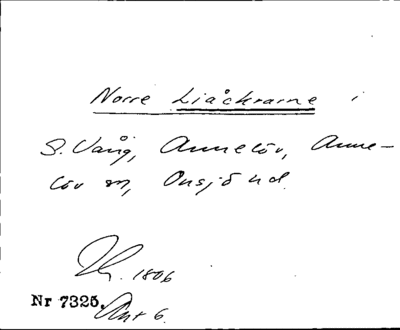 Norre Liåckrarne i
S. Vång, Annelöv, Anne-
löv sn, Onsjö hd.
1806
Nr 7325. Akt 6.